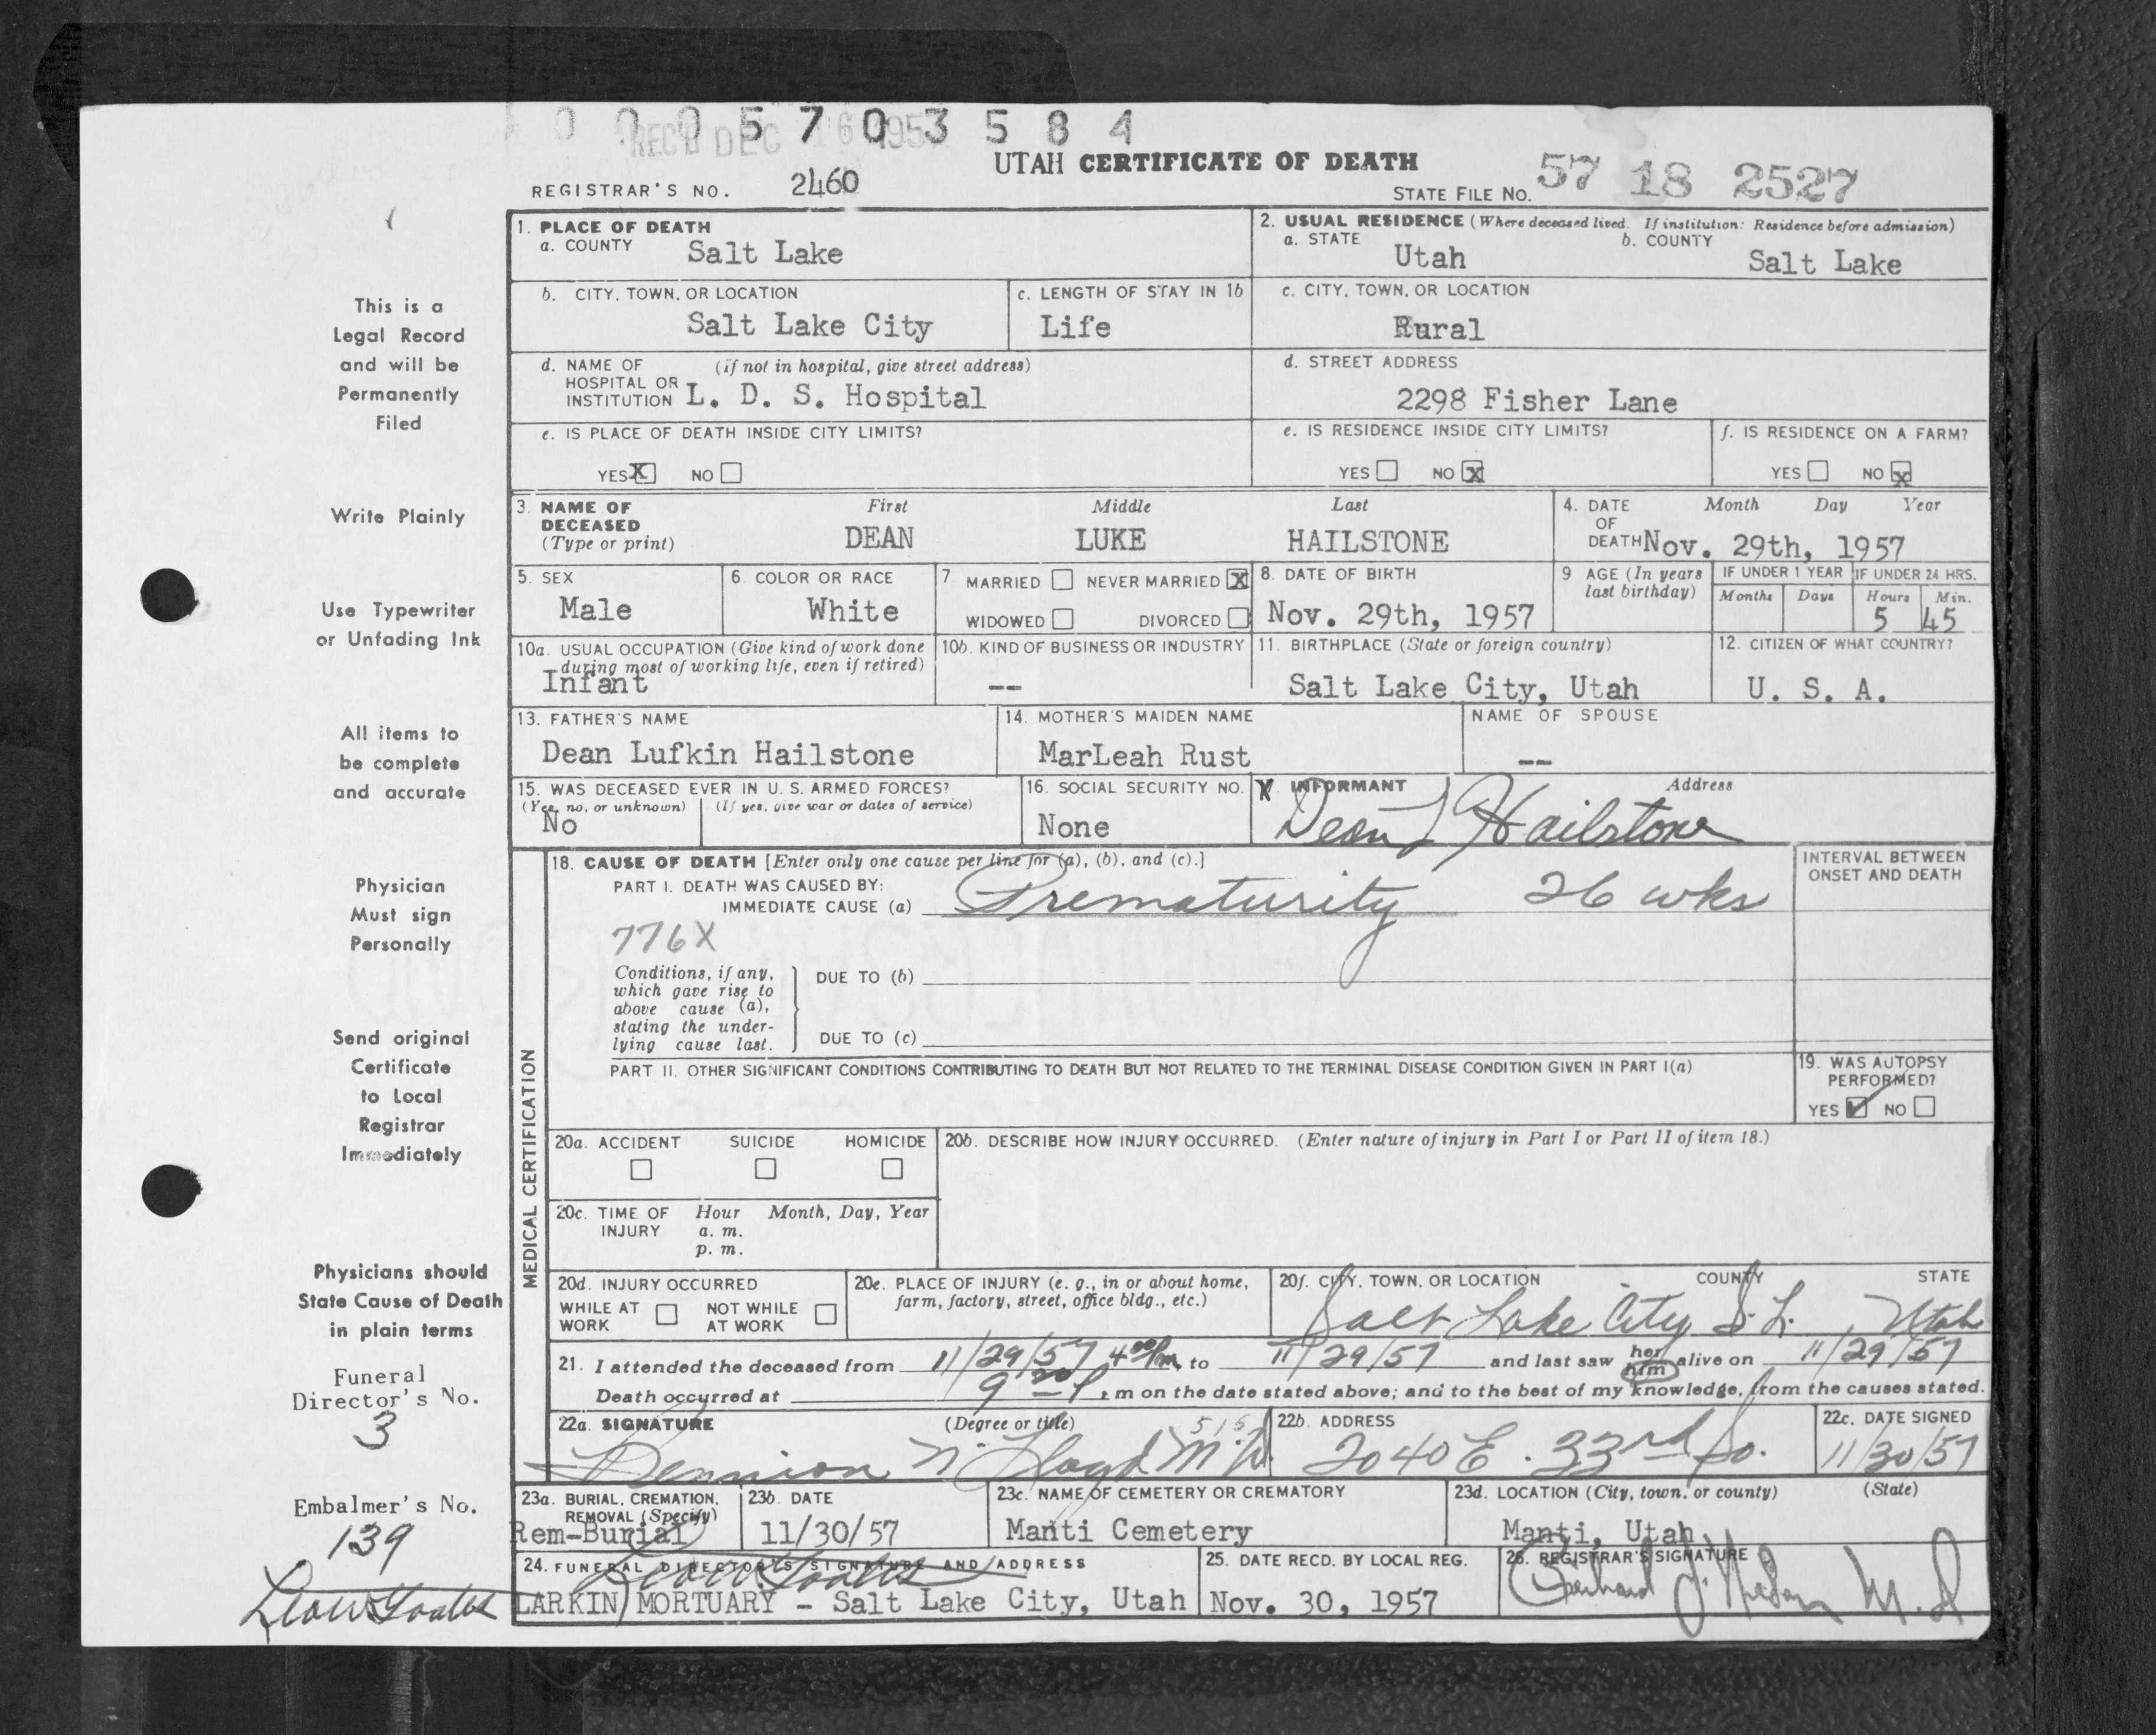 0 0 0 5 7 0 3 5 8 4
REC'D DEC 16 195
UTAH CERTIFICATE OF DEATH
REGISTRAR'S NO. 2460
STATE FILE NO. 57 18 2527
1. PLACE OF DEATH
a. COUNTY Salt Lake
2. USUAL RESIDENCE (Where deceased lived. If institution: Residence before admission)
a. STATE Utah b. COUNTY Salt Lake
b. CITY, TOWN, OR LOCATION Salt Lake City
c. LENGTH OF STAY IN 1b Life
c. CITY, TOWN, OR LOCATION Rural
d. NAME OF HOSPITAL OR INSTITUTION (if not in hospital, give street address) L. D. S. Hospital
d. STREET ADDRESS 2298 Fisher Lane
e. IS PLACE OF DEATH INSIDE CITY LIMITS? YES X NO
e. IS RESIDENCE INSIDE CITY LIMITS? YES NO X
f. IS RESIDENCE ON A FARM? YES NO X
3. NAME OF DECEASED (Type or print)
First Middle Last
DEAN LUKE HAILSTONE
4. DATE OF DEATH Month Day Year
Nov. 29th, 1957
5. SEX Male
6. COLOR OR RACE White
7 MARRIED NEVER MARRIED X
WIDOWED DIVORCED
8. DATE OF BIRTH Nov. 29th, 1957
9 AGE (In years last birthday)
IF UNDER 1 YEAR Months Days
IF UNDER 24 HRS. Hours 5 Min. 45
10a. USUAL OCCUPATION (Give kind of work done during most of working life, even if retired)
Infant
10b. KIND OF BUSINESS OR INDUSTRY
--
11. BIRTHPLACE (State or foreign country)
Salt Lake City, Utah
12. CITIZEN OF WHAT COUNTRY?
U. S. A.
13. FATHER'S NAME
Dean Lufkin Hailstone
14. MOTHER'S MAIDEN NAME
MarLeah Rust
NAME OF SPOUSE
--
15. WAS DECEASED EVER IN U. S. ARMED FORCES?
(Yes, no, or unknown) (If yes, give war or dates of service)
No
16. SOCIAL SECURITY NO.
None
X INFORMANT Address
Dean L Hailstone
MEDICAL CERTIFICATION
18. CAUSE OF DEATH [Enter only one cause per line for (a), (b), and (c).]
INTERVAL BETWEEN ONSET AND DEATH
PART I. DEATH WAS CAUSED BY:
IMMEDIATE CAUSE (a) Prematurity 26 wks
776X
Conditions, if any, which gave rise to above cause (a), stating the underlying cause last.
DUE TO (b)
DUE TO (c)
PART II. OTHER SIGNIFICANT CONDITIONS CONTRIBUTING TO DEATH BUT NOT RELATED TO THE TERMINAL DISEASE CONDITION GIVEN IN PART I(a)
19. WAS AUTOPSY PERFORMED?
YES ✓ NO
20a. ACCIDENT SUICIDE HOMICIDE
20b. DESCRIBE HOW INJURY OCCURRED. (Enter nature of injury in Part I or Part II of item 18.)
20c. TIME OF INJURY Hour Month, Day, Year
a. m.
p. m.
20d. INJURY OCCURRED
WHILE AT WORK NOT WHILE AT WORK
20e. PLACE OF INJURY (e. g., in or about home, farm, factory, street, office bldg., etc.)
20f. CITY, TOWN, OR LOCATION COUNTY STATE
Salt Lake City S.L. Utah
21. I attended the deceased from 11/29/57 4 00 Pm to 11/29/57 and last saw her him alive on 11/29/57
Death occurred at 9 P. m on the date stated above; and to the best of my knowledge, from the causes stated.
22a. SIGNATURE (Degree or title)
Lloyd M.D.
22b. ADDRESS
2040 E. 33rd So.
22c. DATE SIGNED
11/30/57
23a. BURIAL, CREMATION, REMOVAL (Specify)
Rem-Burial
23b. DATE
11/30/57
23c. NAME OF CEMETERY OR CREMATORY
Manti Cemetery
23d. LOCATION (City, town, or county) (State)
Manti, Utah
24. FUNERAL DIRECTOR'S SIGNATURE AND ADDRESS
LARKIN MORTUARY - Salt Lake City, Utah
25. DATE RECD. BY LOCAL REG.
Nov. 30, 1957
26. REGISTRAR'S SIGNATURE
M.D
This is a
Legal Record
and will be
Permanently
Filed
Write Plainly
Use Typewriter
or Unfading Ink
All items to
be complete
and accurate
Physician
Must sign
Personally
Send original
Certificate
to Local
Registrar
Immediately
Physicians should
State Cause of Death
in plain terms
Funeral
Director's No.
3
Embalmer's No.
139